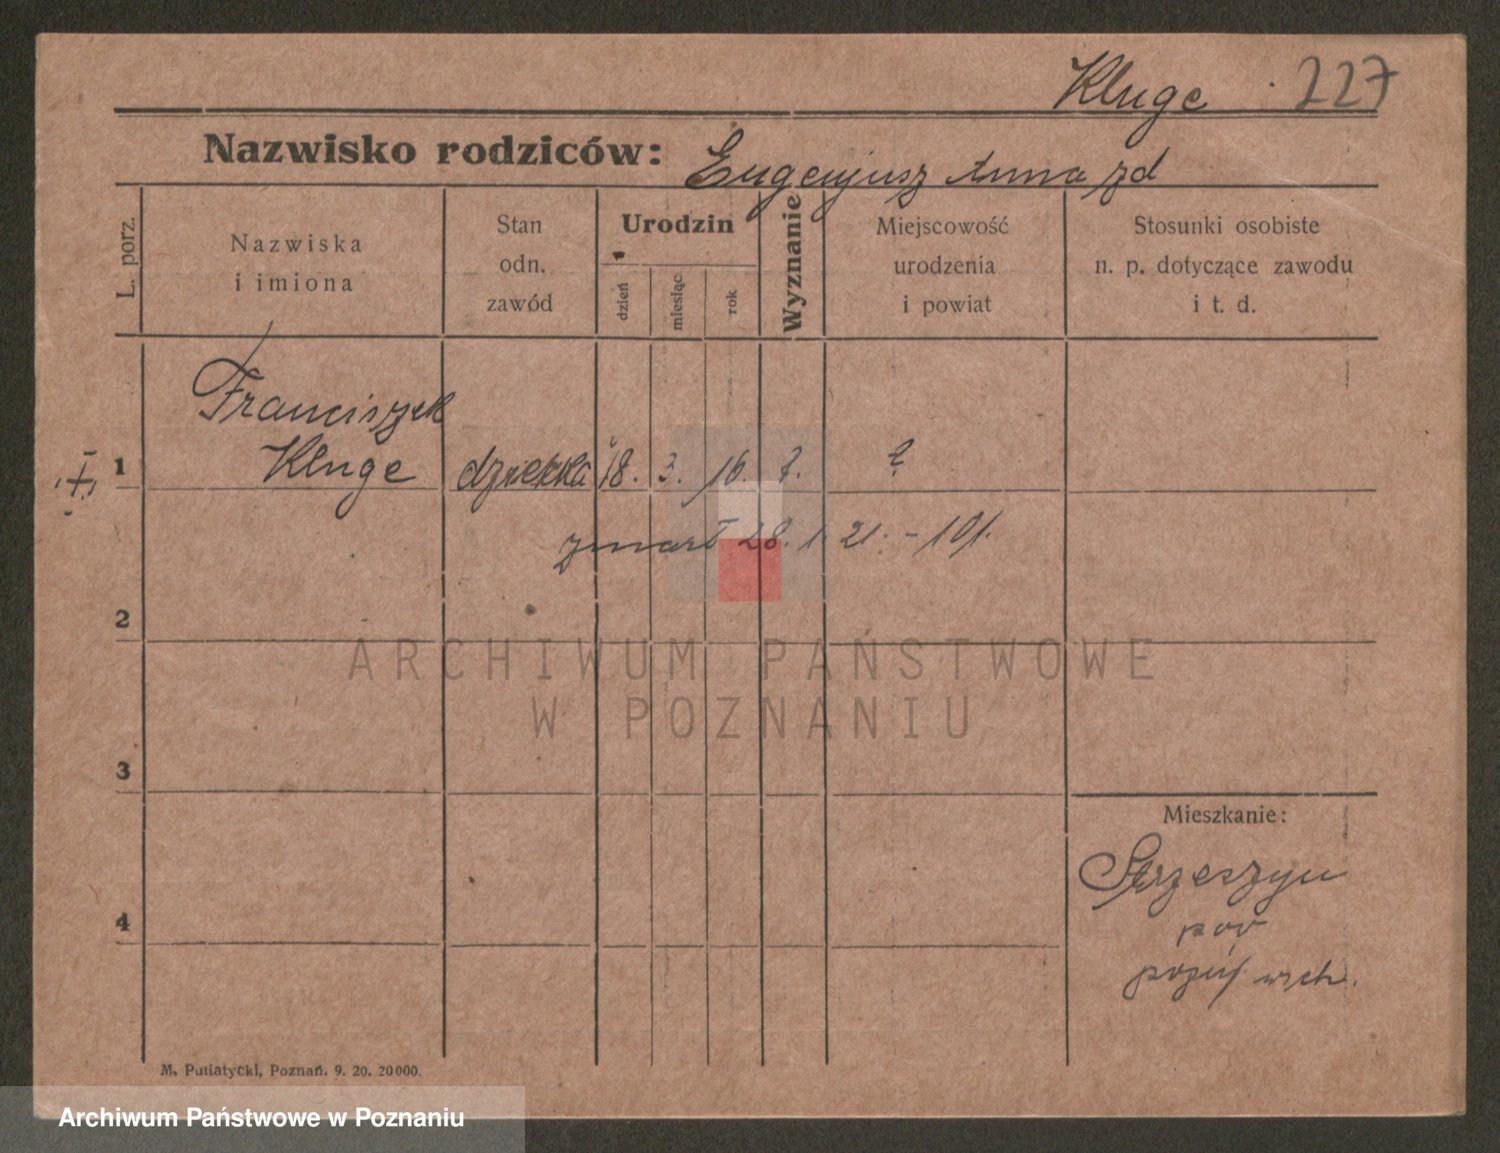 Kluge 227
Nazwisko rodziców: Eugenjusz Anna zd
L. porz.
Nazwiska
i imiona
Stan
odn.
zawód
Urodzin
dzień
miesiąc
rok
Wyznanie
Miejscowość
urodzenia
i powiat
Stosunki osobiste
n. p. dotyczące zawodu
i t. d.
Franciszek
1 Kluge dziecko 18. 3. 16. ? ?
zmarł 28. 1 21. - 101.
2
3
4
Mieszkanie:
Strzeszyn
pow
wsch.
M. Putiatycki, Poznań. 9. 20. 20000.
ARCHIWUM PAŃSTWOWE
W POZNANIU
Archiwum Państwowe w Poznaniu